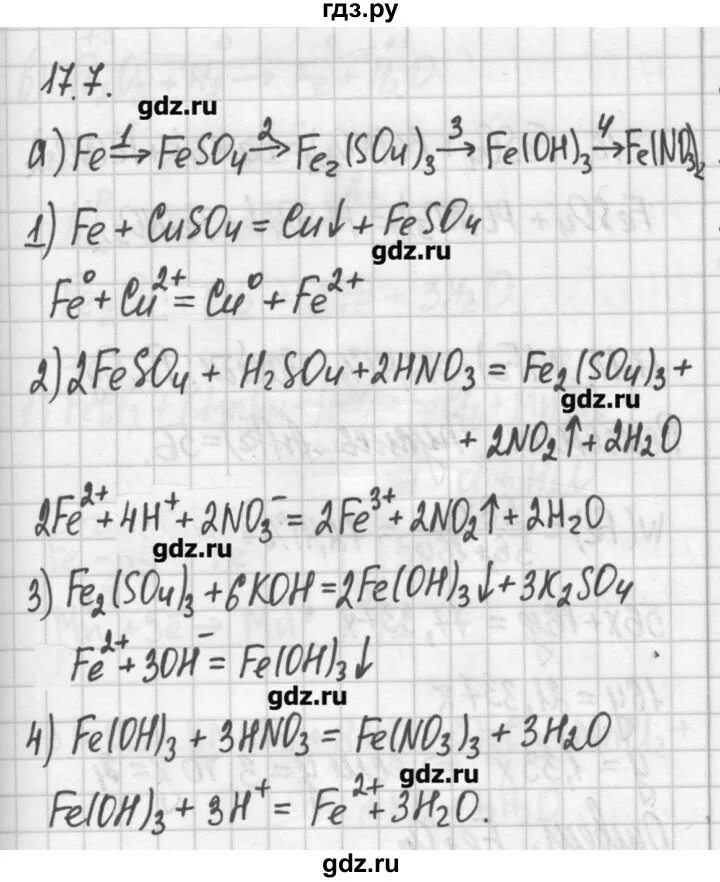 гдз.ру
17.7.
gdz.ru
а) Fe →¹ FeSO₄ →² Fe₂(SO₄)₃ →³ Fe(OH)₃ →⁴ Fe(NO₃)₂
1) Fe + CuSO₄ = Cu↓ + FeSO₄
gdz.ru
Fe⁰ + Cu²⁺ = Cu⁰ + Fe²⁺
2) 2FeSO₄ + H₂SO₄ + 2HNO₃ = Fe₂(SO₄)₃ +
gdz.ru
+ 2NO₂↑ + 2H₂O
2Fe²⁺ + 4H⁺ + 2NO₃⁻ = 2Fe³⁺ + 2NO₂↑ + 2H₂O
gdz.ru
3) Fe₂(SO₄)₃ + 6KOH = 2Fe(OH)₃↓ + 3K₂SO₄
Fe²⁺ + 3OH⁻ = Fe(OH)₃↓
gdz.ru
4) Fe(OH)₃ + 3HNO₃ = Fe(NO₃)₃ + 3H₂O
gdz.ru
Fe(OH)₃ + 3H⁺ = Fe²⁺ + 3H₂O.
gdz.ru